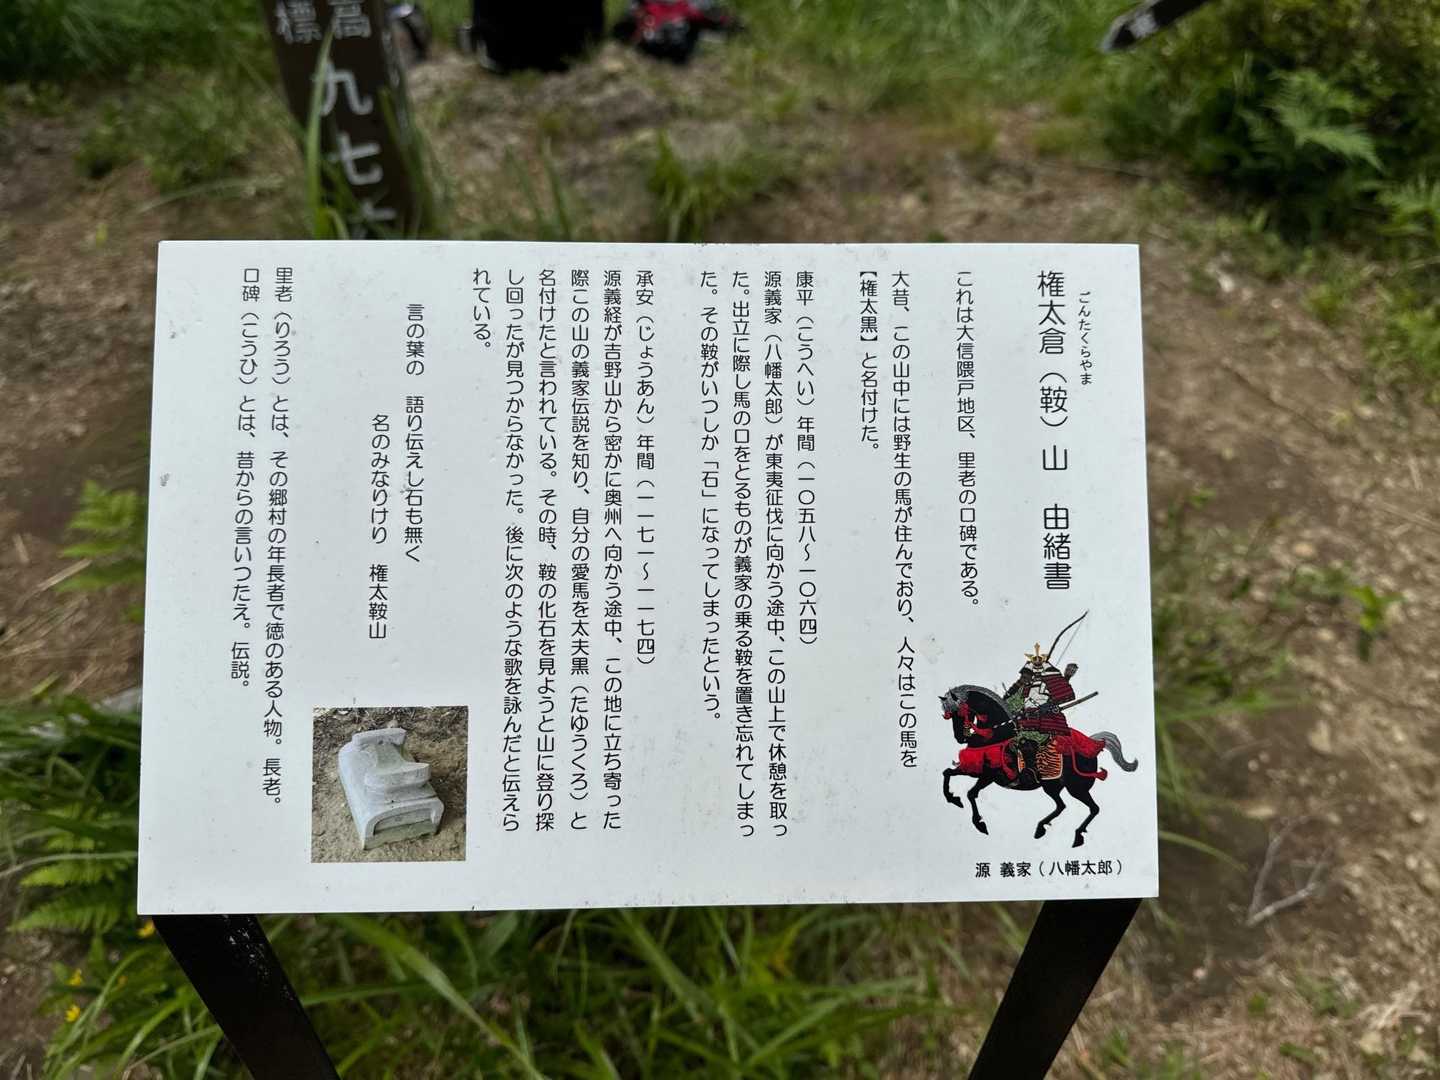 ごんたくらやま
権太倉（鞍）山　由緒書
これは大信隈戸地区、里老の口碑である。
大昔、この山中には野生の馬が住んでおり、人々はこの馬を
【権太黒】と名付けた。
康平（こうへい）年間（一〇五八〜一〇六四）
源義家（八幡太郎）が東夷征伐に向かう途中、この山上で休憩を取っ
た。出立に際し馬の口をとるものが義家の乗る鞍を置き忘れてしまっ
た。その鞍がいつしか「石」になってしまったという。
承安（じょうあん）年間（一一七一〜一一七四）
源義経が吉野山から密かに奥州へ向かう途中、この地に立ち寄った
際この山の義家伝説を知り、自分の愛馬を太夫黒（たゆうくろ）と
名付けたと言われている。その時、鞍の化石を見ようと山に登り探
し回ったが見つからなかった。後に次のような歌を詠んだと伝えら
れている。
言の葉の　語り伝えし石も無く
名のみなりけり　権太鞍山
里老（りろう）とは、その郷村の年長者で徳のある人物。長老。
口碑（こうひ）とは、昔からの言いつたえ。伝説。
源 義家（八幡太郎）
標高
九七